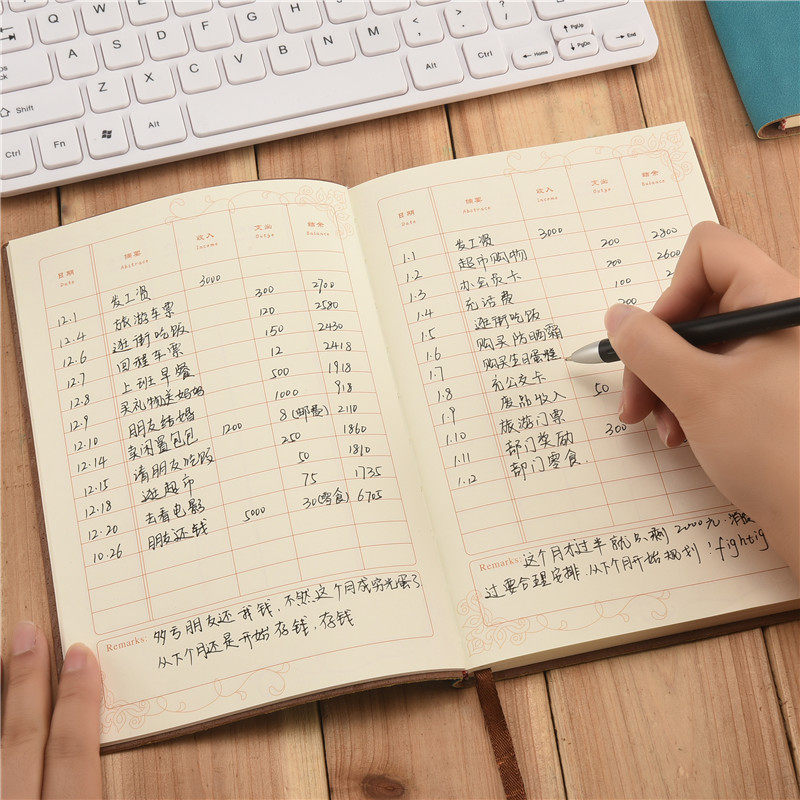 Q W E R T Y U I O P
A S D F G H J K L
Shift Z X C V B N M
Ctrl Fn Alt Alt Ctrl Home PgUp PgDn End
日期 摘要 收入 支出 结余
Date Abstrace Income Outgo Balance
12.1 发工资 3000
12.4 旅游车票 300 2700
12.6 逛街吃饭 120 2580
12.7 回程车票 150 2430
12.8 上班早餐 12 2418
12.9 买礼物送妈妈 500 1918
12.10 朋友结婚 1000 918
12.14 卖闲置包包 1200 8(邮费) 2110
12.15 请朋友吃饭 250 1860
12.18 逛超市 50 1810
12.20 去看电影 75 1735
10.26 朋友还钱 5000 30(零食) 6705
Remarks: 多亏朋友还我钱,不然这个月成穷光蛋了
从下个月还是开始存钱,存钱
日期 摘要 收入 支出 结余
Date Abstrace Income Outgo Balance
1.1 发工资 3000
1.2 超市购物 200 2800
1.3 办会员卡 200 2600
1.4 充话费 100
1.5 逛街吃饭 200
1.6 购买防晒霜
1.7 购买生日蛋糕
1.8 充公交卡
1.9 废品收入 50
1.10 旅游门票
1.11 部门奖励 300
1.12 部门零食
Remarks: 这个月才过半就只剩2000元.消
过要合理安排.从下个月开始规划!fightig